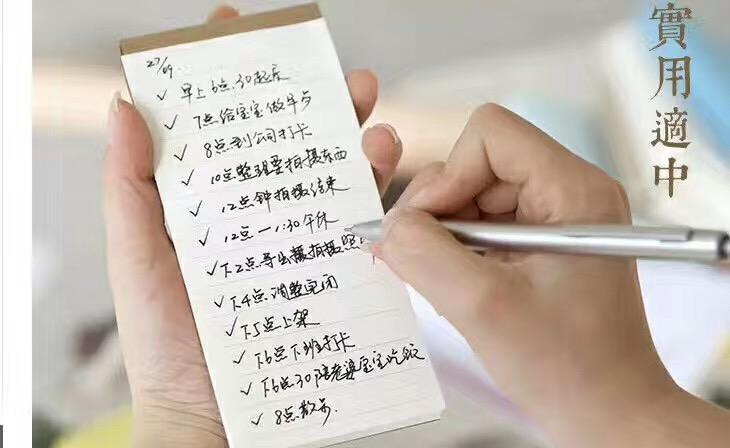 27/09
✓ 早上6点30起床
✓ 7点给宝宝做早点
✓ 8点到公司打卡
✓ 10点整理要拍摄东西
✓ 12点钟拍摄结束
✓ 12点一1:30午休
✓ 下2点导出拍摄照
✓ 下4点调整
✓ 下5点上架
✓ 下6点下班打卡
✓ 下6点30陪老婆宝宝吃饭
✓ 8点散步.
實用適中